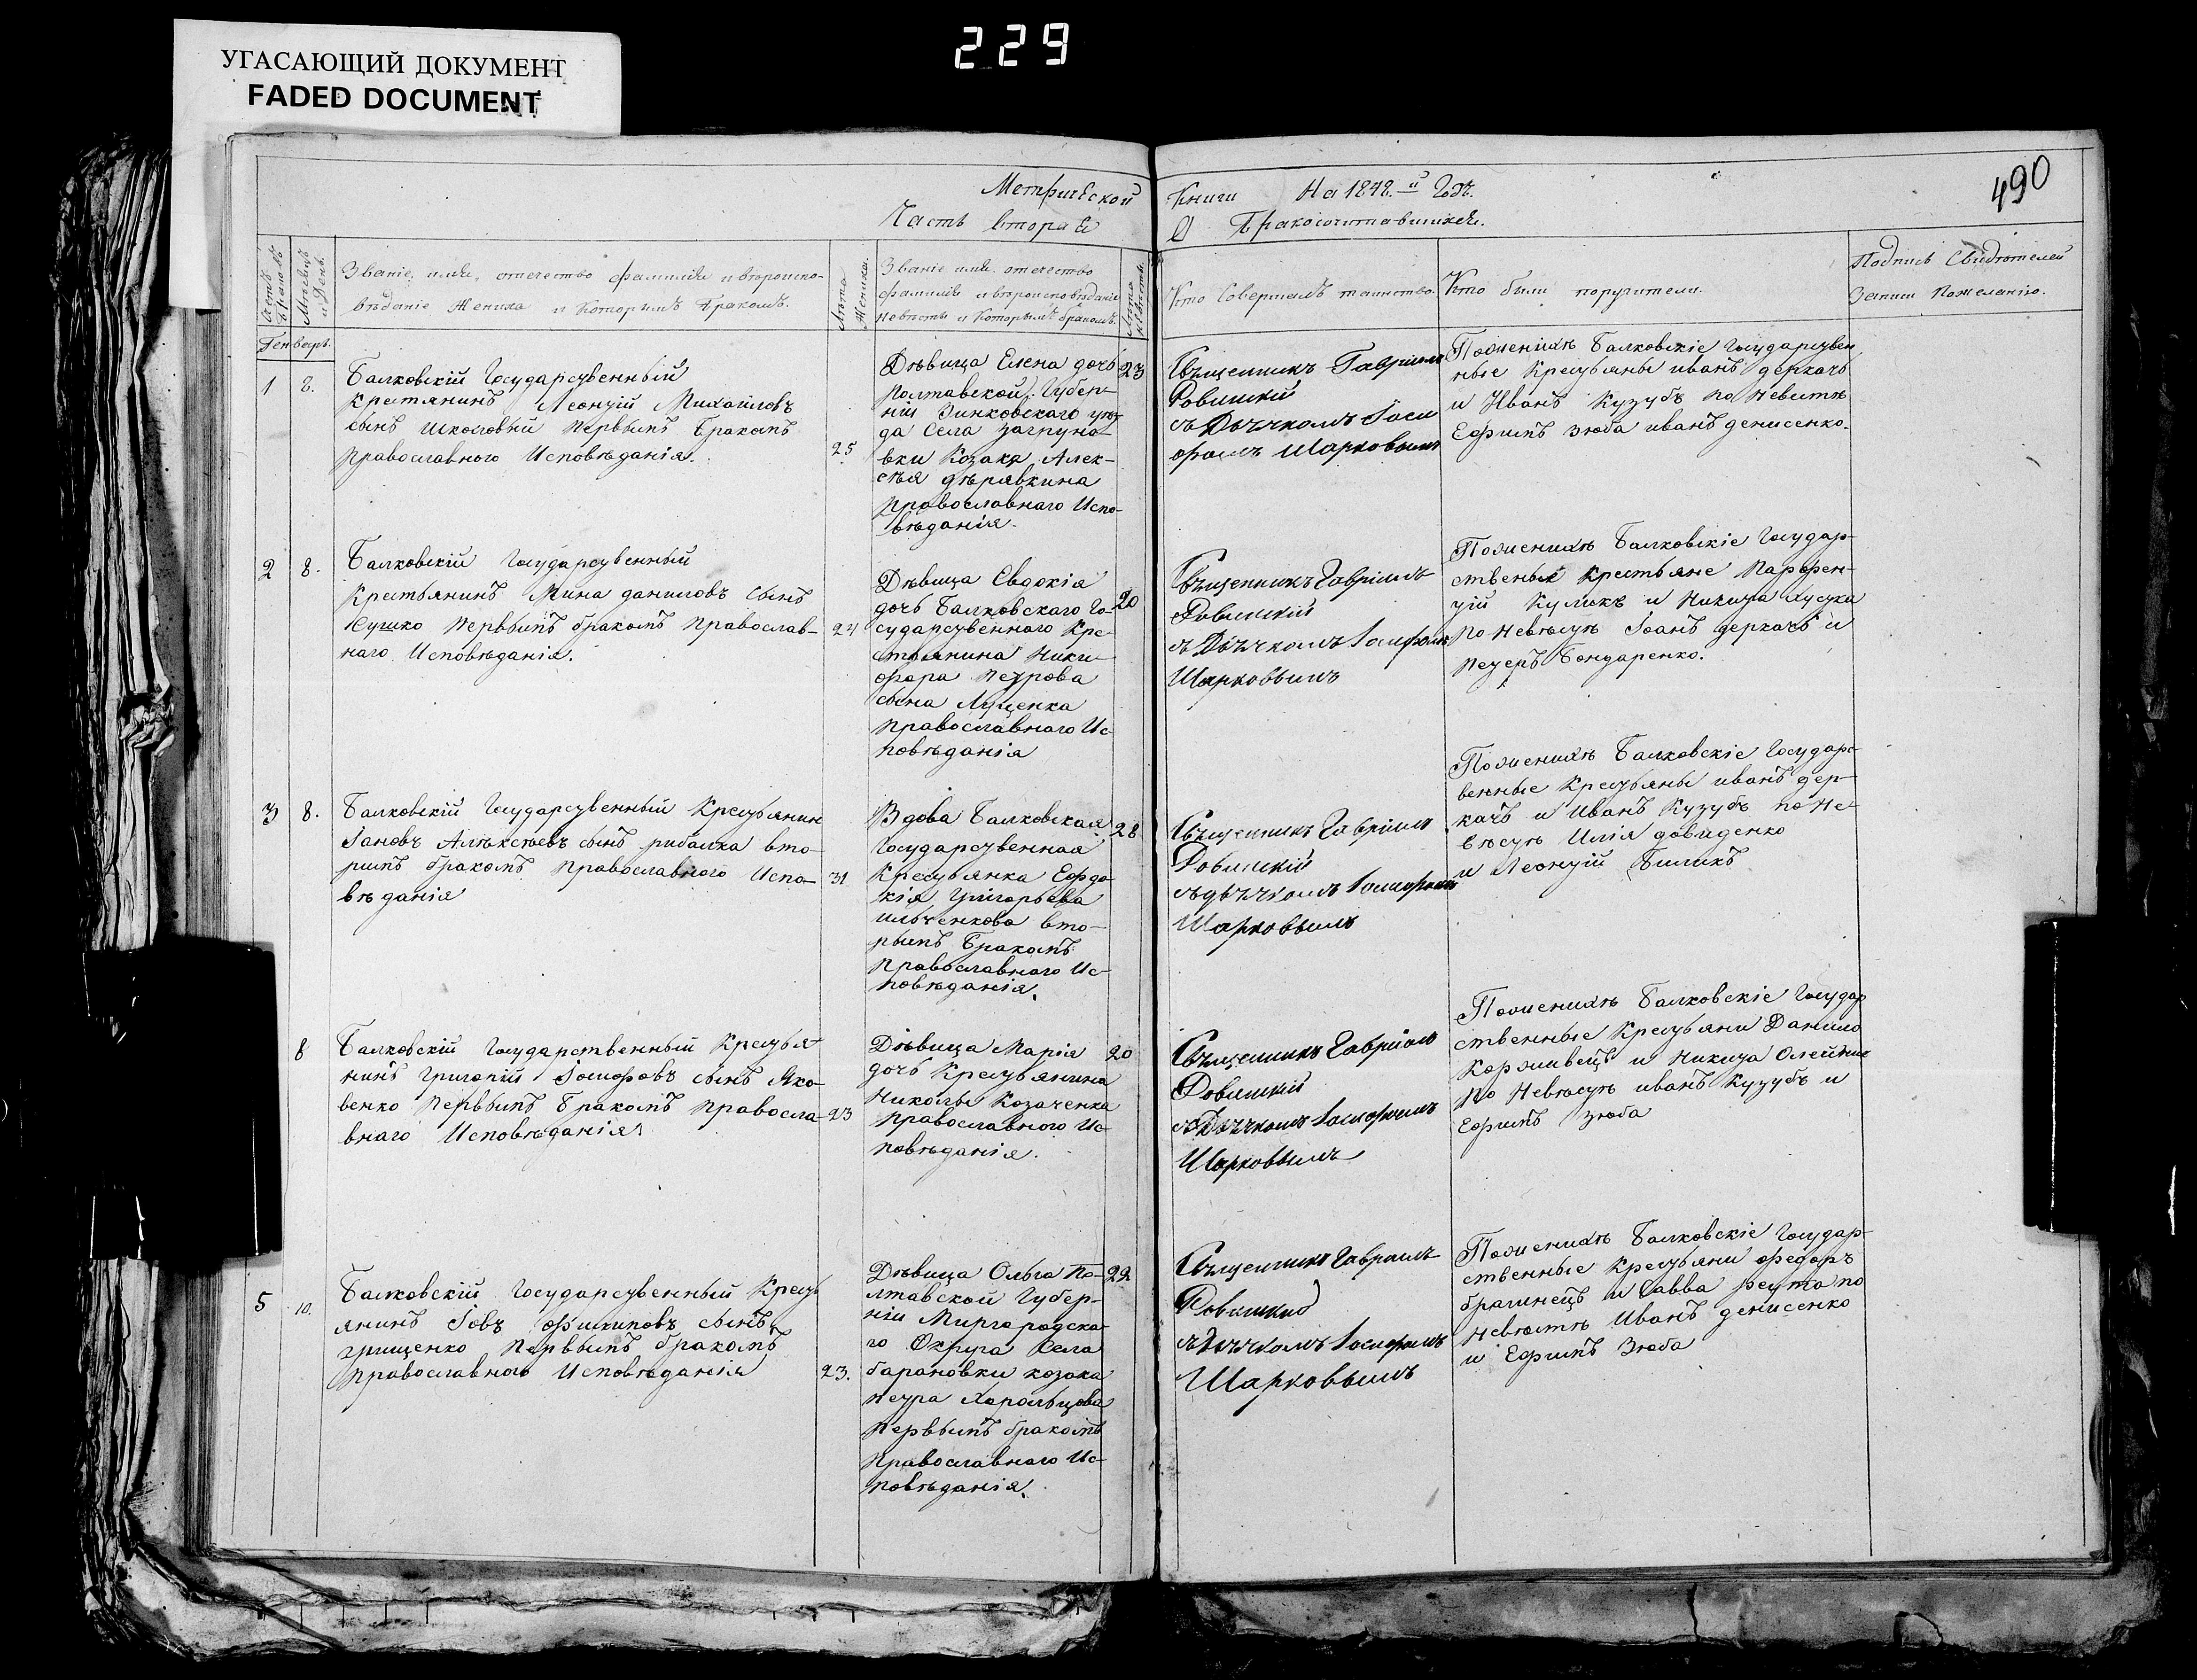 УГАСАЮЩИЙ ДОКУМЕНТ
FADED DOCUMENT
229
490
Метрической Книги На 1848.й Годъ.
Часть вторая О Бракосочитавшихся.
Счетъ браковъ
Мѣсяцъ и День.
Званіе, имя, отечество фамилія и вѣроиспо-
вѣданіе Жениха и Которымъ бракомъ.
Лѣта Жениха.
Званіе имя, отечество
фамилія и вѣроисповѣданіе
Невѣсты и Которымъ бракомъ.
Лѣта Невѣсты.
Кто Совершалъ таинство.
Кто были поручители.
Подпись Свидѣтелей
Записи Пожеланію.
Генварь.
1
8.
Балковскій Государственный
Крестянинъ Леонтій Михайловъ
сынъ Шкловый Первымъ Бракомъ
Православного Исповѣданія.
25
Дѣвица Елена дочь
Полтавской Губер-
ніи Зинковского уѣз-
да Села Загруно-
вки Козака Алек-
сѣя дѣрявкина
Православнаго Испо-
вѣданія.
23
Священникъ Гавріилъ
Ровинскій
съ Дьячкомъ Іоси
фомъ Шарковымъ
Поженихѣ Балковскіе Государствен
ные Крестьяны иванъ деркачь
и Иванъ Кузубъ по Невестѣ
Ефимъ зюба иванъ денисенко.
2
8.
Балковскій Государственный
Крестьянинъ Мина даниловъ Сынъ
Сушко Первымъ бракомъ Православ-
наго Исповѣданія.
24
Дѣвица Евдокія
дочь Балковскаго Го-
сударственного Кре-
стьянина Ники-
фора Петрова
сына Луценка
Православнаго Ис-
повѣданія
20
Священникъ Гавріилъ
Ровинскій
съ Дьячкомъ Іосифомъ
Шарковымъ
Поженихѣ Балковскіе Государ-
ственые Крестьяне Парфен-
тій Куликъ и Никита
по Невѣстѣ Іоанъ деркачъ и
Петеръ Бондаренко.
3
8.
Балковскій Государственный Крестьянин
Алѣксѣевъ сынъ рибалка вто-
рымъ бракомъ Православного Испо-
вѣданія
31
Вдова Балковская
Государственная
Крестьянка Евдо-
кія Григорьева
ильченкова вто-
рымъ Бракомъ
Православнаго Ис-
повѣданія.
28
Священникъ Гавріилъ
Ровинскій
съ дьячкомъ Іосифомъ
Шарковымъ
Поженихѣ Балковскіе Государс-
венные Крестьяны иванъ дер-
качъ и Иванъ Кузубъ по Не-
вѣстѣ Илія довиденко
и Леонтій Биликъ
8
Балковскій Государственный Крестья-
нинъ Григорій Іосифовъ сынъ Яко-
венко Первымъ Бракомъ Правосла-
внаго Исповѣданія
23
Дѣвица Марія
дочь Крестьянина
Николы Козаченка
Православного Ис-
повѣданія.
20
Священникъ Гавріилъ
Ровинскій
съ Дьячкомъ Іосифомъ
Шарковымъ
Поженихѣ Балковскіе Государ
ственные Крестьяни Данило
Коржавецъ и Никита Олейник
по Невѣстѣ иванъ Кузубъ и
Ефимъ Зюба
5
10.
Балковскій Государственный Кресть
янинъ Іовъ Филиповъ сынъ
грищенко Первымъ бракомъ
Православного Исповѣданія
23.
Дѣвица Ольга По-
лтавской Губер-
ніи Миргородска-
го Округа Села
барановки козака
Петра Харольцова
Первымъ бракомъ
Православнаго Ис-
повѣданія.
22
Священникъ Гавріилъ
Ровинскій
съ Дьячкомъ Іосифомъ
Шарковымъ
Поженихѣ Балковскіе Государ-
ственные Крестьяни федоръ
брагинецъ и Савва реута по
Невѣстѣ Иванъ денисенко
и Ефимъ Зюба